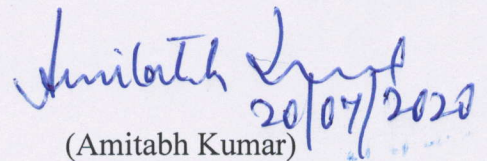 Amitabh Kumar
20/07/2020
(Amitabh Kumar)